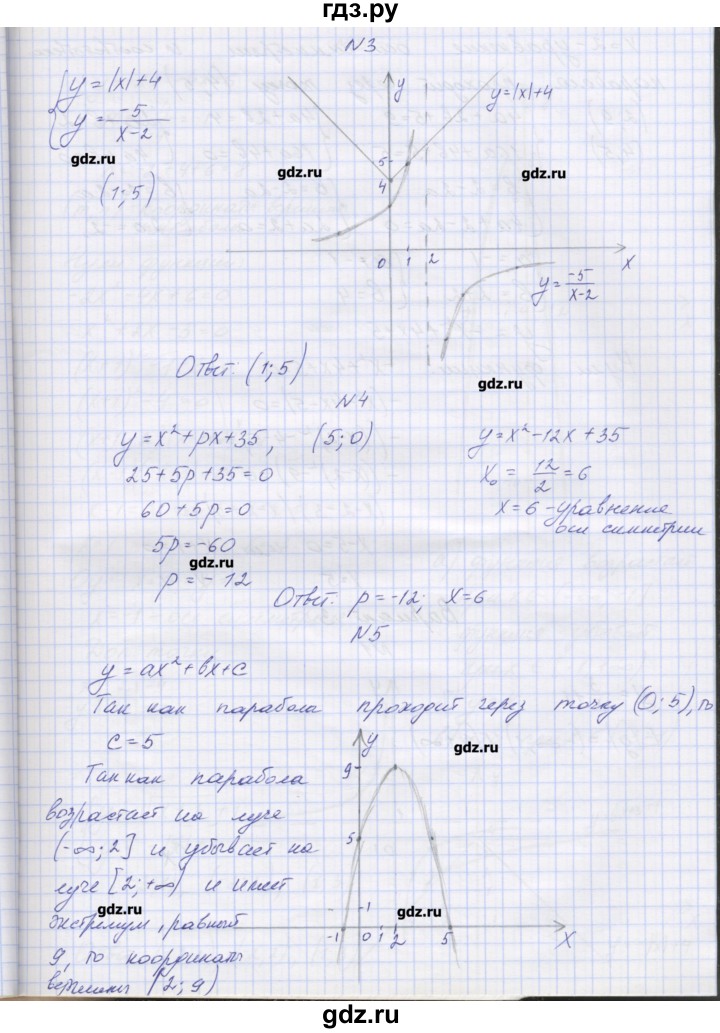 гдз.ру
N3
y=|x|+4
y=-5/x-2
(1;5)
y
y=|x|+4
5
4
0 1 2 x
y=-5/x-2
Ответ: (1;5)
N4
y=x²+px+35, (5;0)
25+5p+35=0
60+5p=0
5p=-60
p=-12
y=x²-12x+35
x₀=12/2=6
x=6-уравнение
оси симметрии
Ответ: p=-12; x=6
N5
y=ax²+bx+c
Так как парабола проходит через точку (0;5), то
c=5
Так как парабола
возрастает на луче
(-∞;2] и убывает на
луче [2;+∞) и имеет
экстремум, равный
9, то координаты
вершины (2;9)
y
9
5
1
-1 0 1 2 5 x
gdz.ru
gdz.ru
gdz.ru
gdz.ru
gdz.ru
gdz.ru
gdz.ru
gdz.ru
gdz.ru